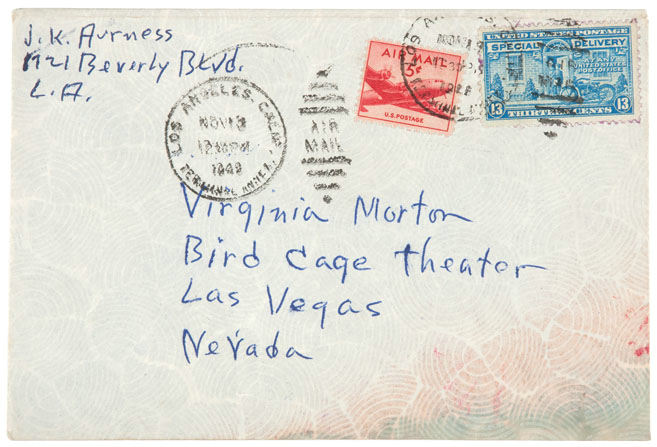 J.K. Aurness
1921 Beverly Blvd.
L.A.
LOS ANGELES, CALIF.
NOV 13
1948
TERMINAL ANNEX
AIR
MAIL
AIR MAIL
5¢
U.S. POSTAGE
UNITED STATES POSTAGE
SPECIAL DELIVERY
UNITED STATES
POST OFFICE
13 THIRTEEN CENTS 13
Virginia Morton
Bird Cage Theater
Las Vegas
Nevada